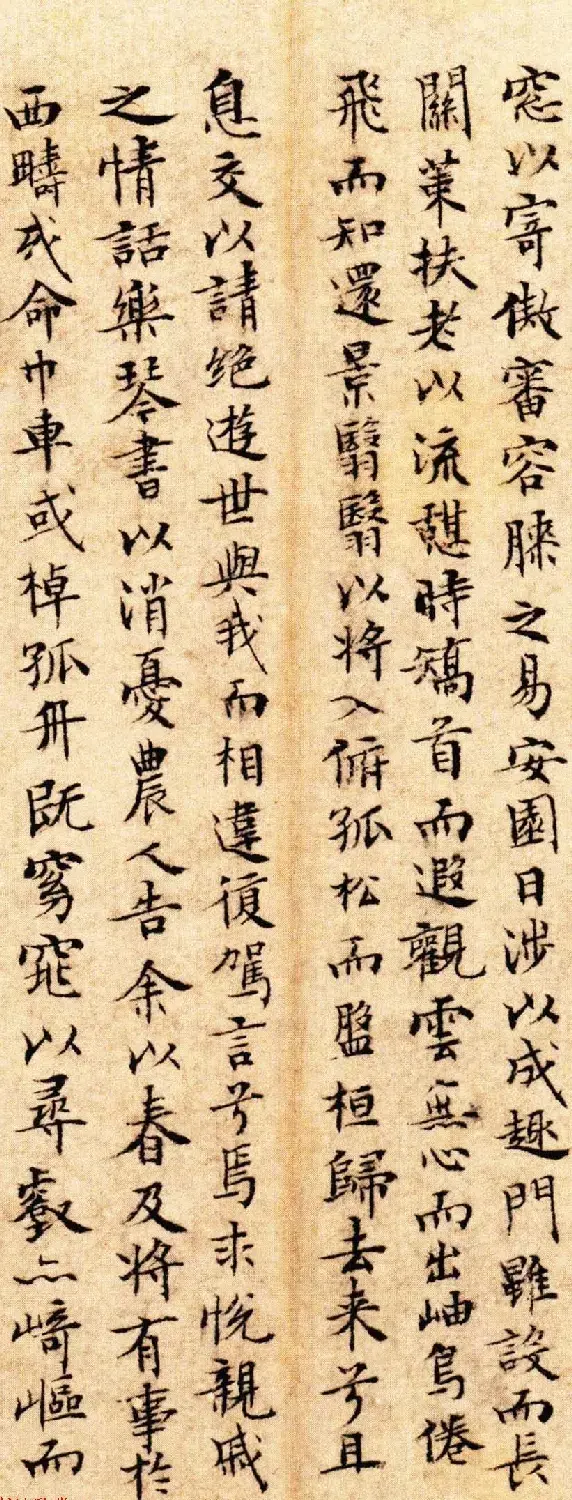 窓以寄傲審容膝之易安園日涉以成趣門雖設而長
關策扶老以流憩時矯首而遐觀雲無心而出岫鳥倦
飛而知還景翳翳以将入俯孤松而盤桓歸去来兮且
息交以請絶遊世與我而相違復駕言兮焉求悅親戚
之情話樂琴書以消憂農人告余以春及将有事於
西疇或命巾車或棹孤舟既窈窕以尋壑亦崎嶇而